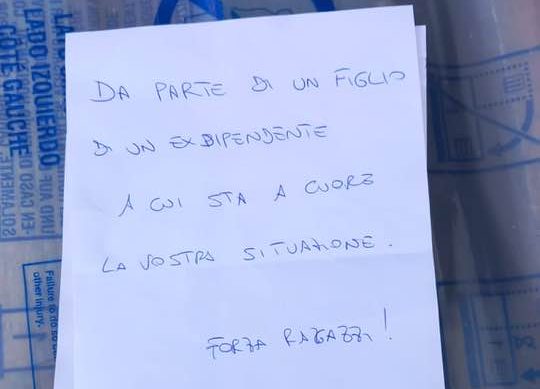 DA PARTE DI UN FIGLIO
DI UN EX DIPENDENTE
A CUI STA A CUORE
LA VOSTRA SITUAZIONE.
FORZA RAGAZZI!
LADO IZQUIERDO
CÔTÉ GAUCHE
SOLAMENTE
EN CASO
Failure to do so
other injury.